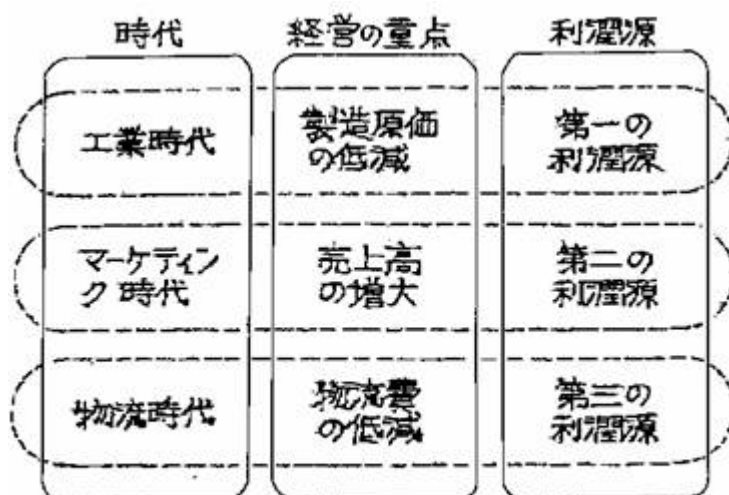 時代
経営の重点
利潤源
工業時代
製造原価
の低減
第一の
利潤源
マーケティン
グ時代
売上高
の増大
第二の
利潤源
物流時代
物流費
の低減
第三の
利潤源